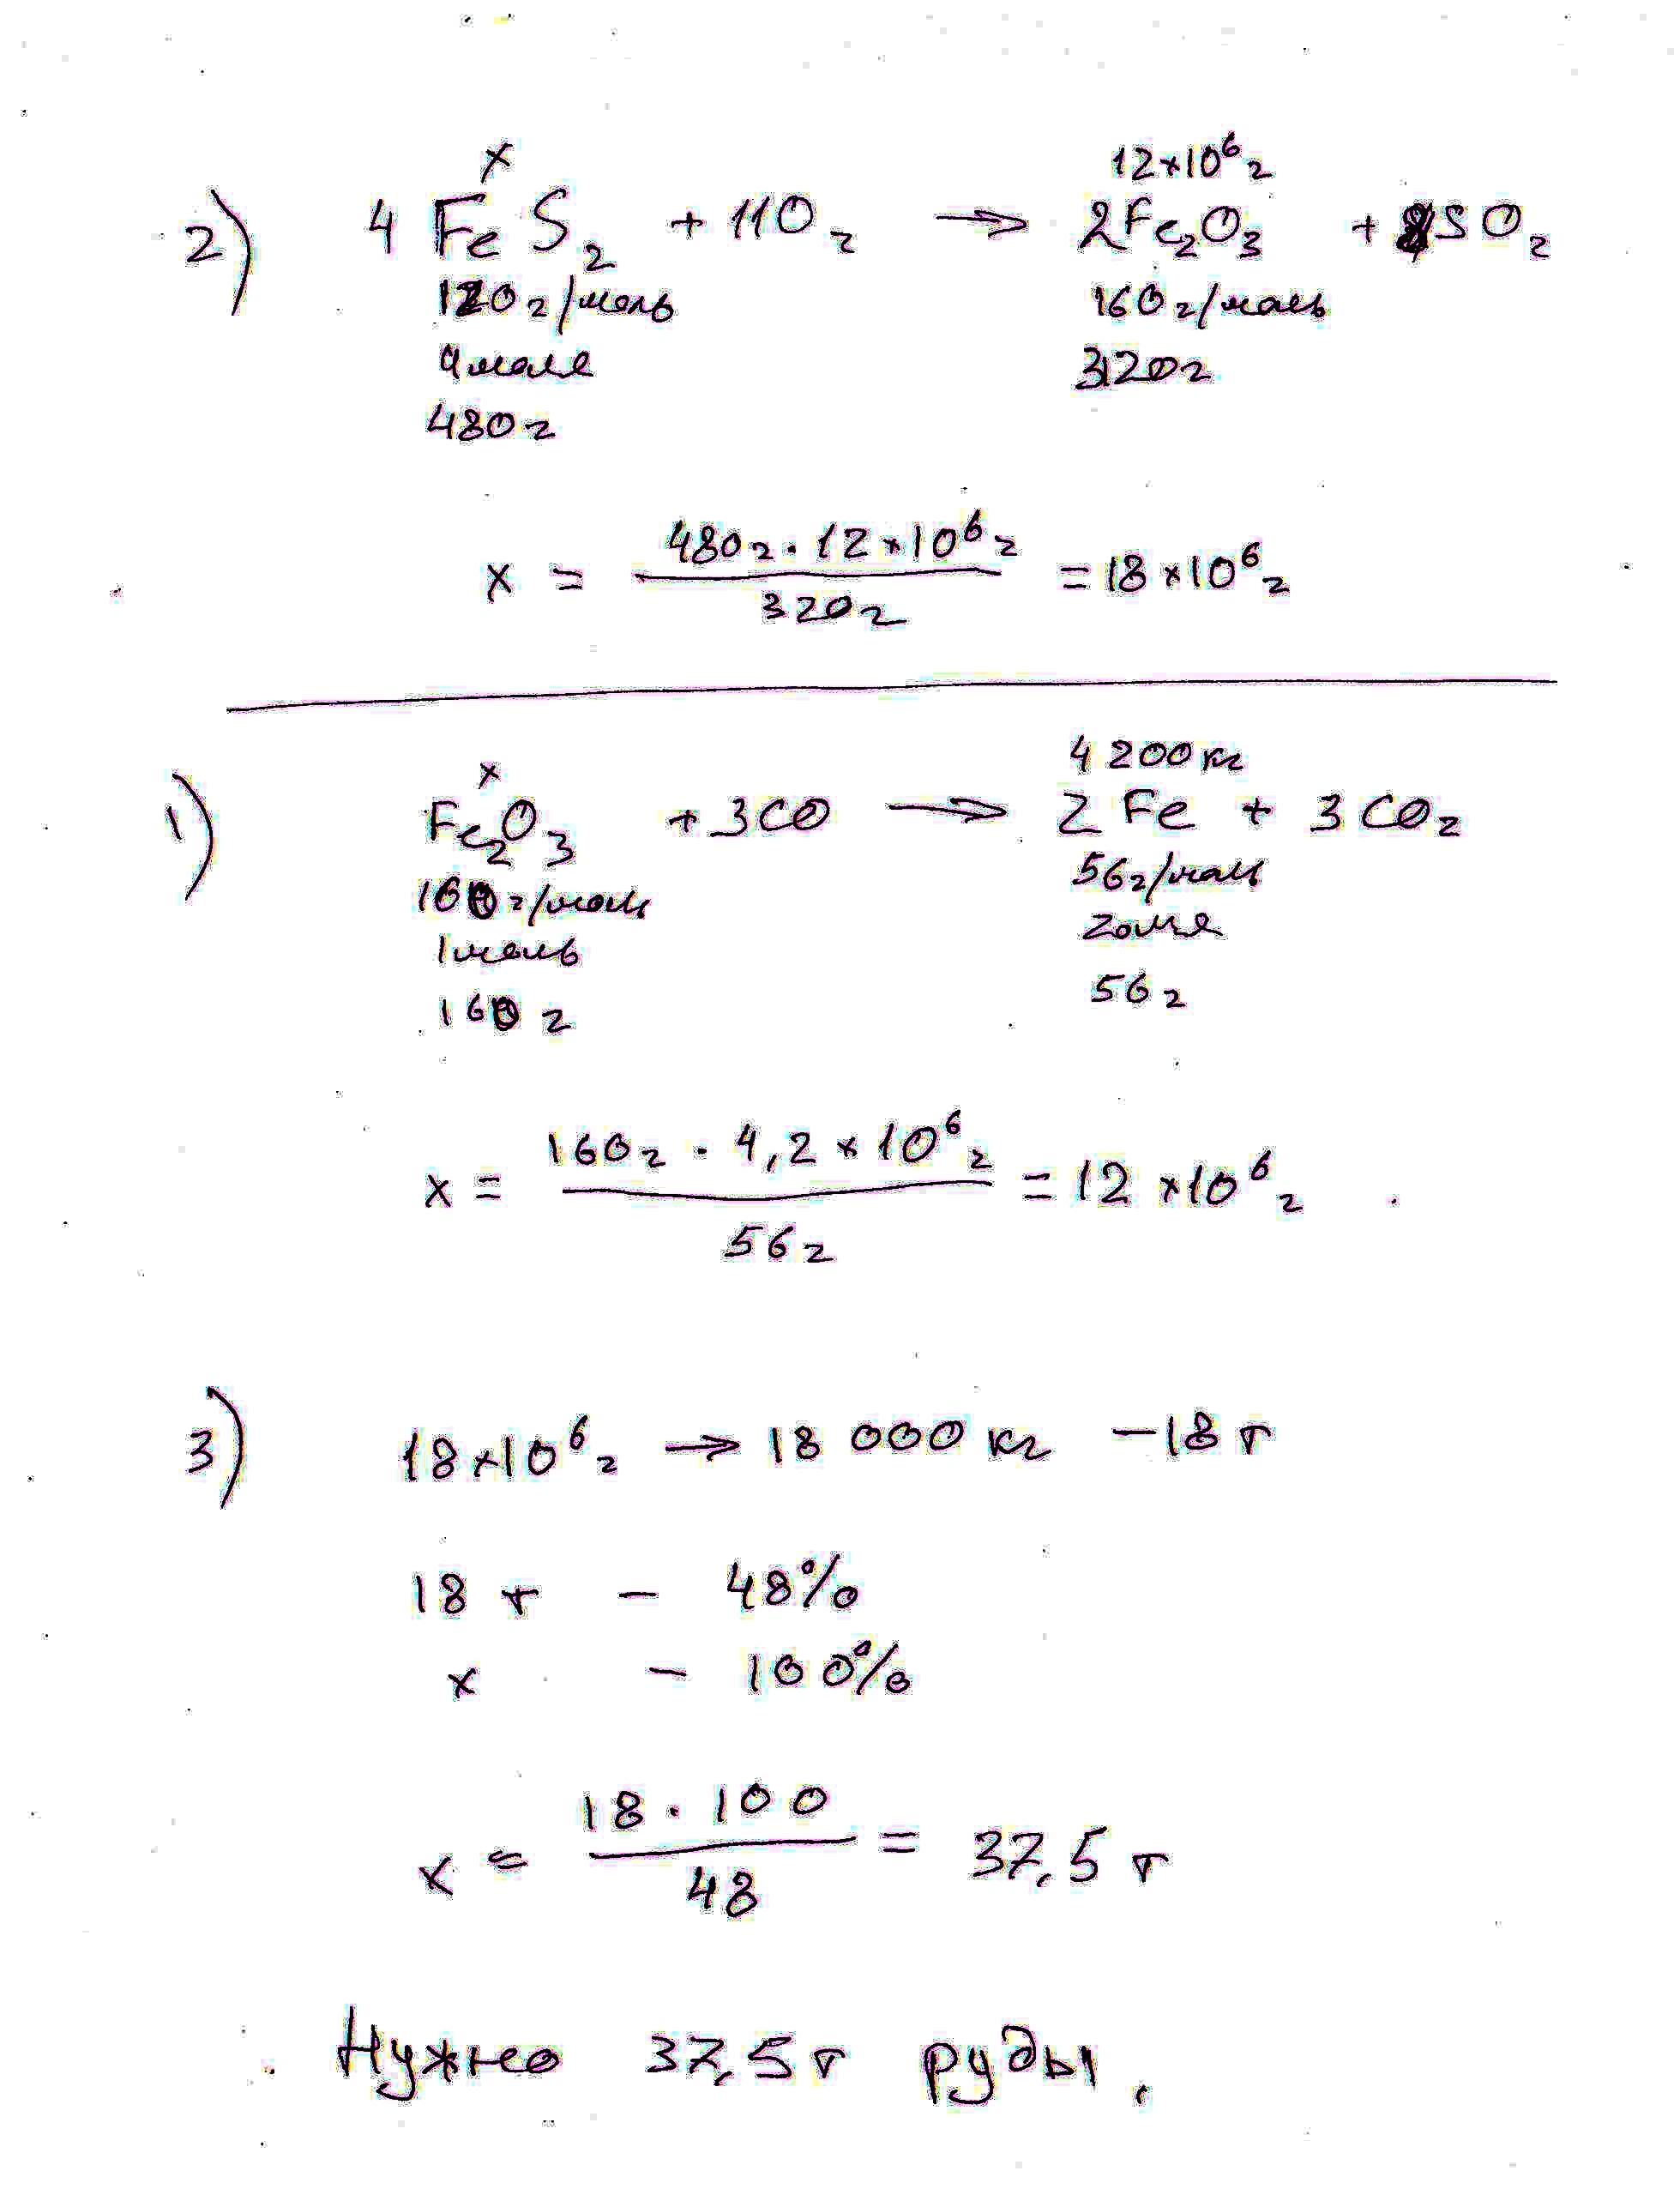 x 12×10⁶ г
2) 4 FeS₂ + 11O₂ → 2Fe₂O₃ + 8SO₂
120 г/моль 160 г/моль
4 моля 320 г
480 г
x = 480 г · 12×10⁶ г / 320 г = 18×10⁶ г
x 4 200 кг
1) Fe₂O₃ + 3CO → 2 Fe + 3 CO₂
160 г/моль 56 г/моль
1 моль
160 г 56 г
x = 160 г · 4,2×10⁶ г / 56 г = 12×10⁶ г
3) 18×10⁶ г → 18 000 кг – 18 т
18 т – 48%
x – 100%
x = 18 · 100 / 48 = 37,5 т
Нужно 37,5 т руды.